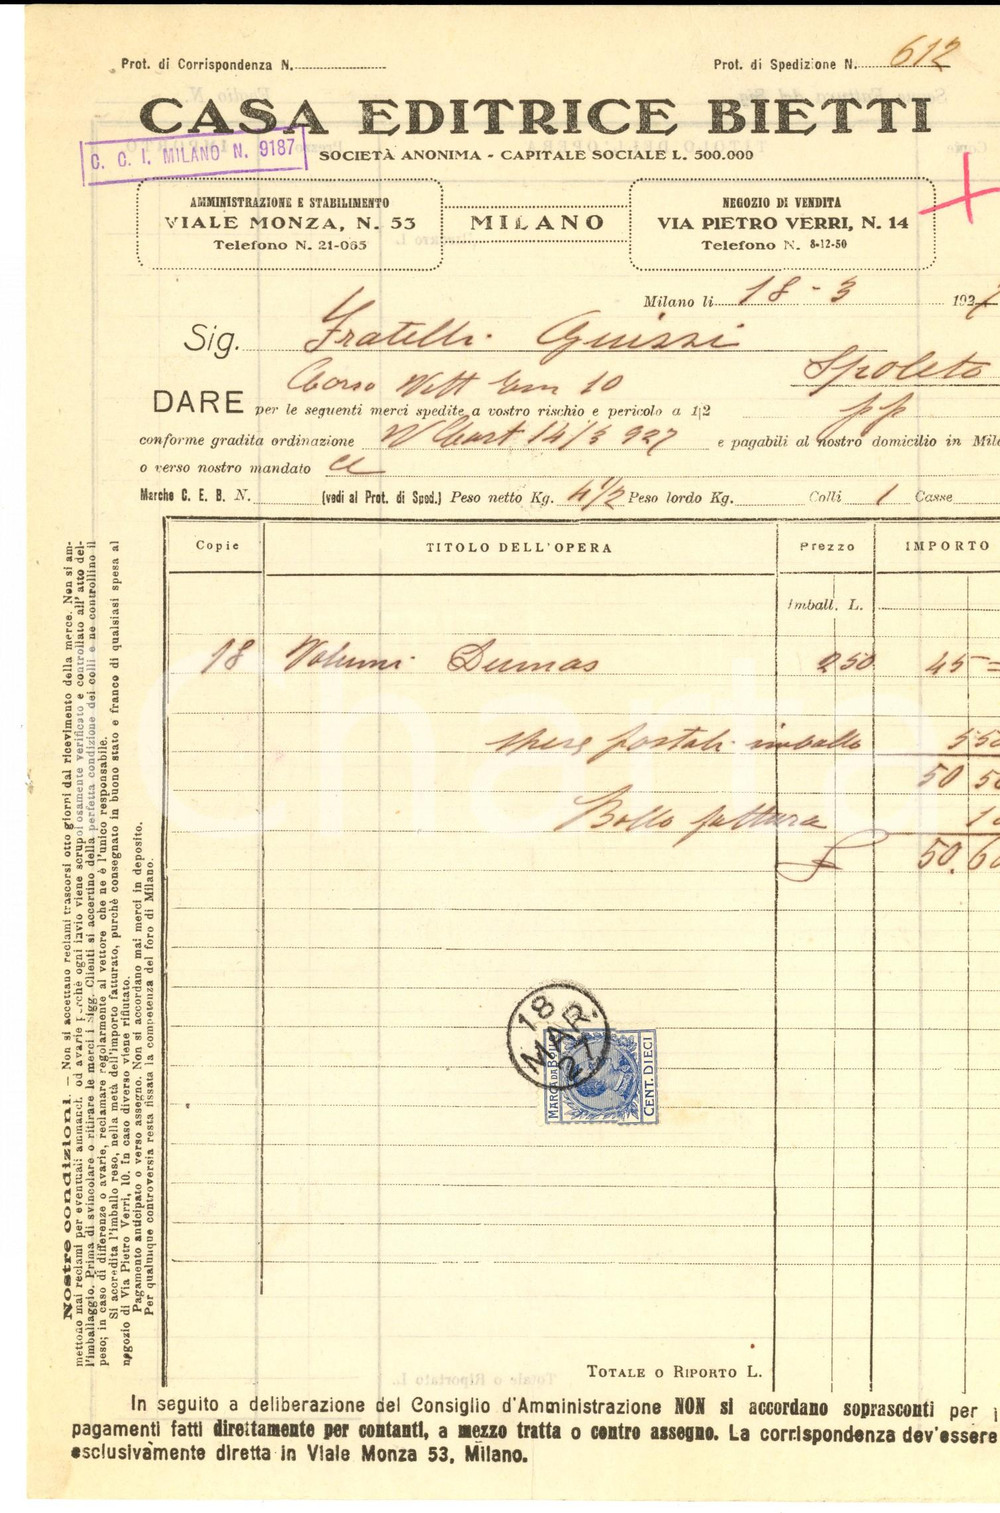 Prot. di Corrispondenza N.
Prot. di Spedizione N. 612
CASA EDITRICE BIETTI
C. C. I. MILANO N. 9187
SOCIETÀ ANONIMA - CAPITALE SOCIALE L. 500.000
AMMINISTRAZIONE E STABILIMENTO
VIALE MONZA, N. 53
Telefono N. 21-065
MILANO
NEGOZIO DI VENDITA
VIA PIETRO VERRI, N. 14
Telefono N. 8-12-50
Milano li 18 - 3 1927
Sig. Fratelli
Corso Vitt Em 10 Spoleto
DARE per le seguenti merci spedite a vostro rischio e pericolo a 1|2 pp
conforme gradita ordinazione V Cart 14/3 927 e pagabili al nostro domicilio in Mila
o verso nostro mandato
Marche C. E. B. N. (vedi al Prot. di Sped.) Peso netto Kg. 4 1/2 Peso lordo Kg. Colli 1 Casse
Copie TITOLO DELL'OPERA Prezzo IMPORTO
Imball. L.
18 Volumi Dumas 2 50 45 =
spese postali imballo 5 50
50 50
Bollo fattura 10
£ 50.60
18 MAR. 27
MARCA DA BOLLO
CENT. DIECI
Nostre condizioni. — Non si accettano reclami trascorsi otto giorni dal ricevimento della merce. Non si am-
mettono mai reclami per eventuali ammanchi od avarie perchè ogni invio viene scrupolosamente verificato e controllato all'atto del-
l'imballaggio. Prima di svincolare o ritirare le merci i Sigg. Clienti si accertino della perfetta condizione dei colli e ne controllino il
peso; in caso di differenze o avarie, reclamare regolarmente al vettore che ne è l'unico responsabile.
Si accredita l'imballo reso, nella metà dell'importo fatturato, purchè consegnato in buono stato e franco di qualsiasi spesa al
negozio di Via Pietro Verri, 10. In caso diverso viene rifiutato.
Pagamento anticipato o verso assegno. Non si accordano mai merci in deposito.
Per qualunque controversia resta fissata la competenza del foro di Milano.
TOTALE O RIPORTO L.
In seguito a deliberazione del Consiglio d'Amministrazione NON si accordano soprasconti per i
pagamenti fatti direttamente per contanti, a mezzo tratta o contro assegno. La corrispondenza dev'essere
esclusivamente diretta in Viale Monza 53, Milano.